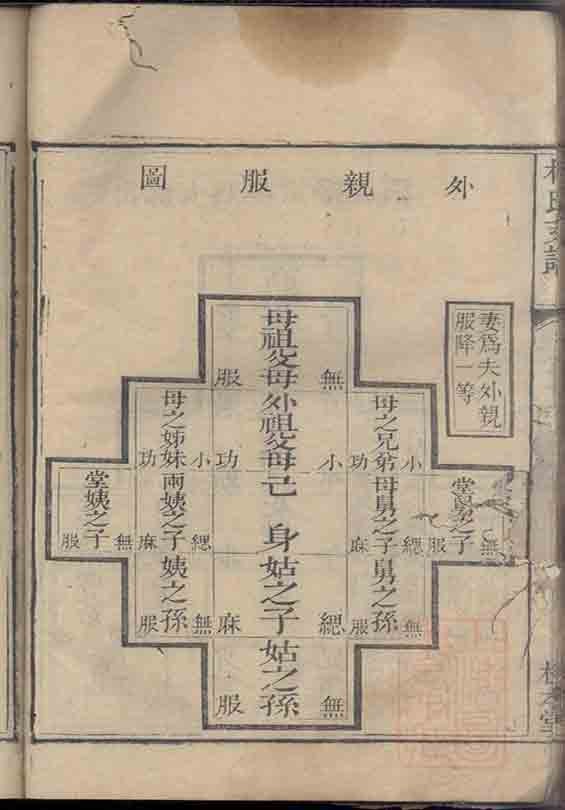 外親服圖
妻爲夫外親
服降一等
堂舅之子
無服
母之兄弟
小功
母舅之子
緦麻
舅之孫
無服
母祖父母
無服
外祖父母
小功
己身
姑之子
緦麻
姑之孫
無服
母之姊妹
小功
兩姨之子
緦麻
姨之孫
無服
堂姨之子
無服